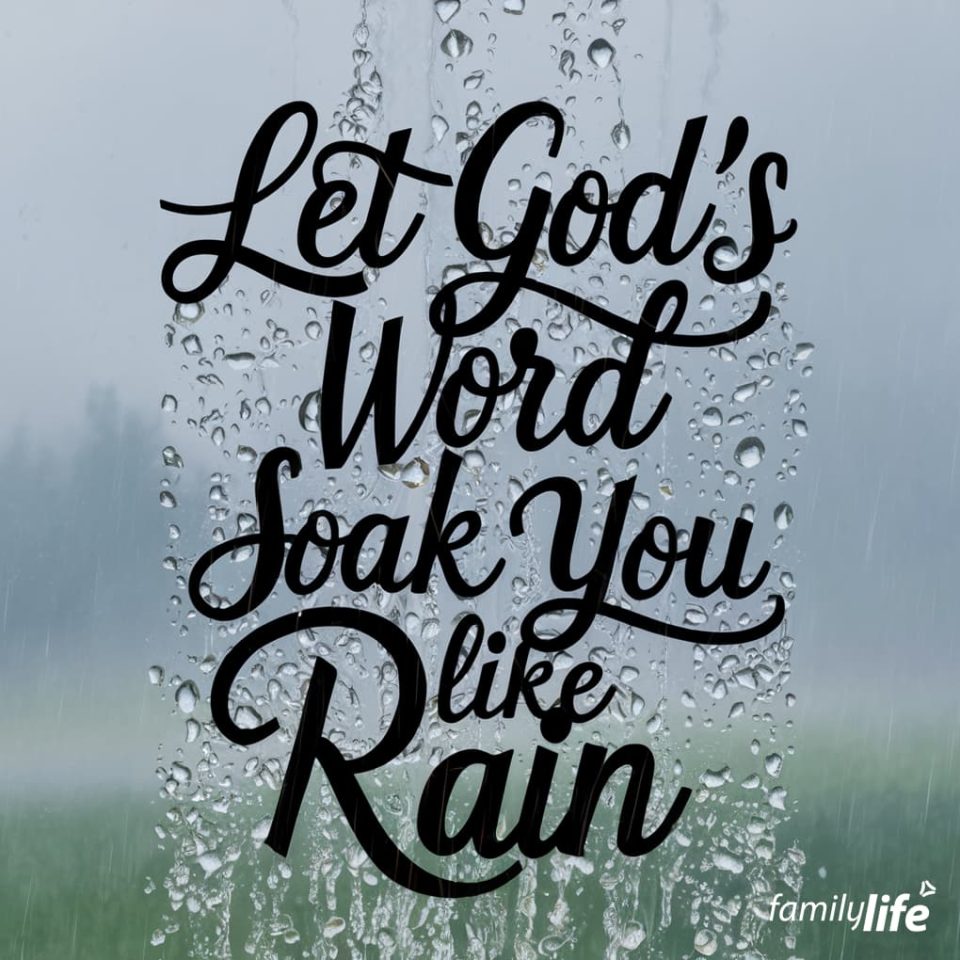 Let God's
Word
Soak You
like
Rain
familylife